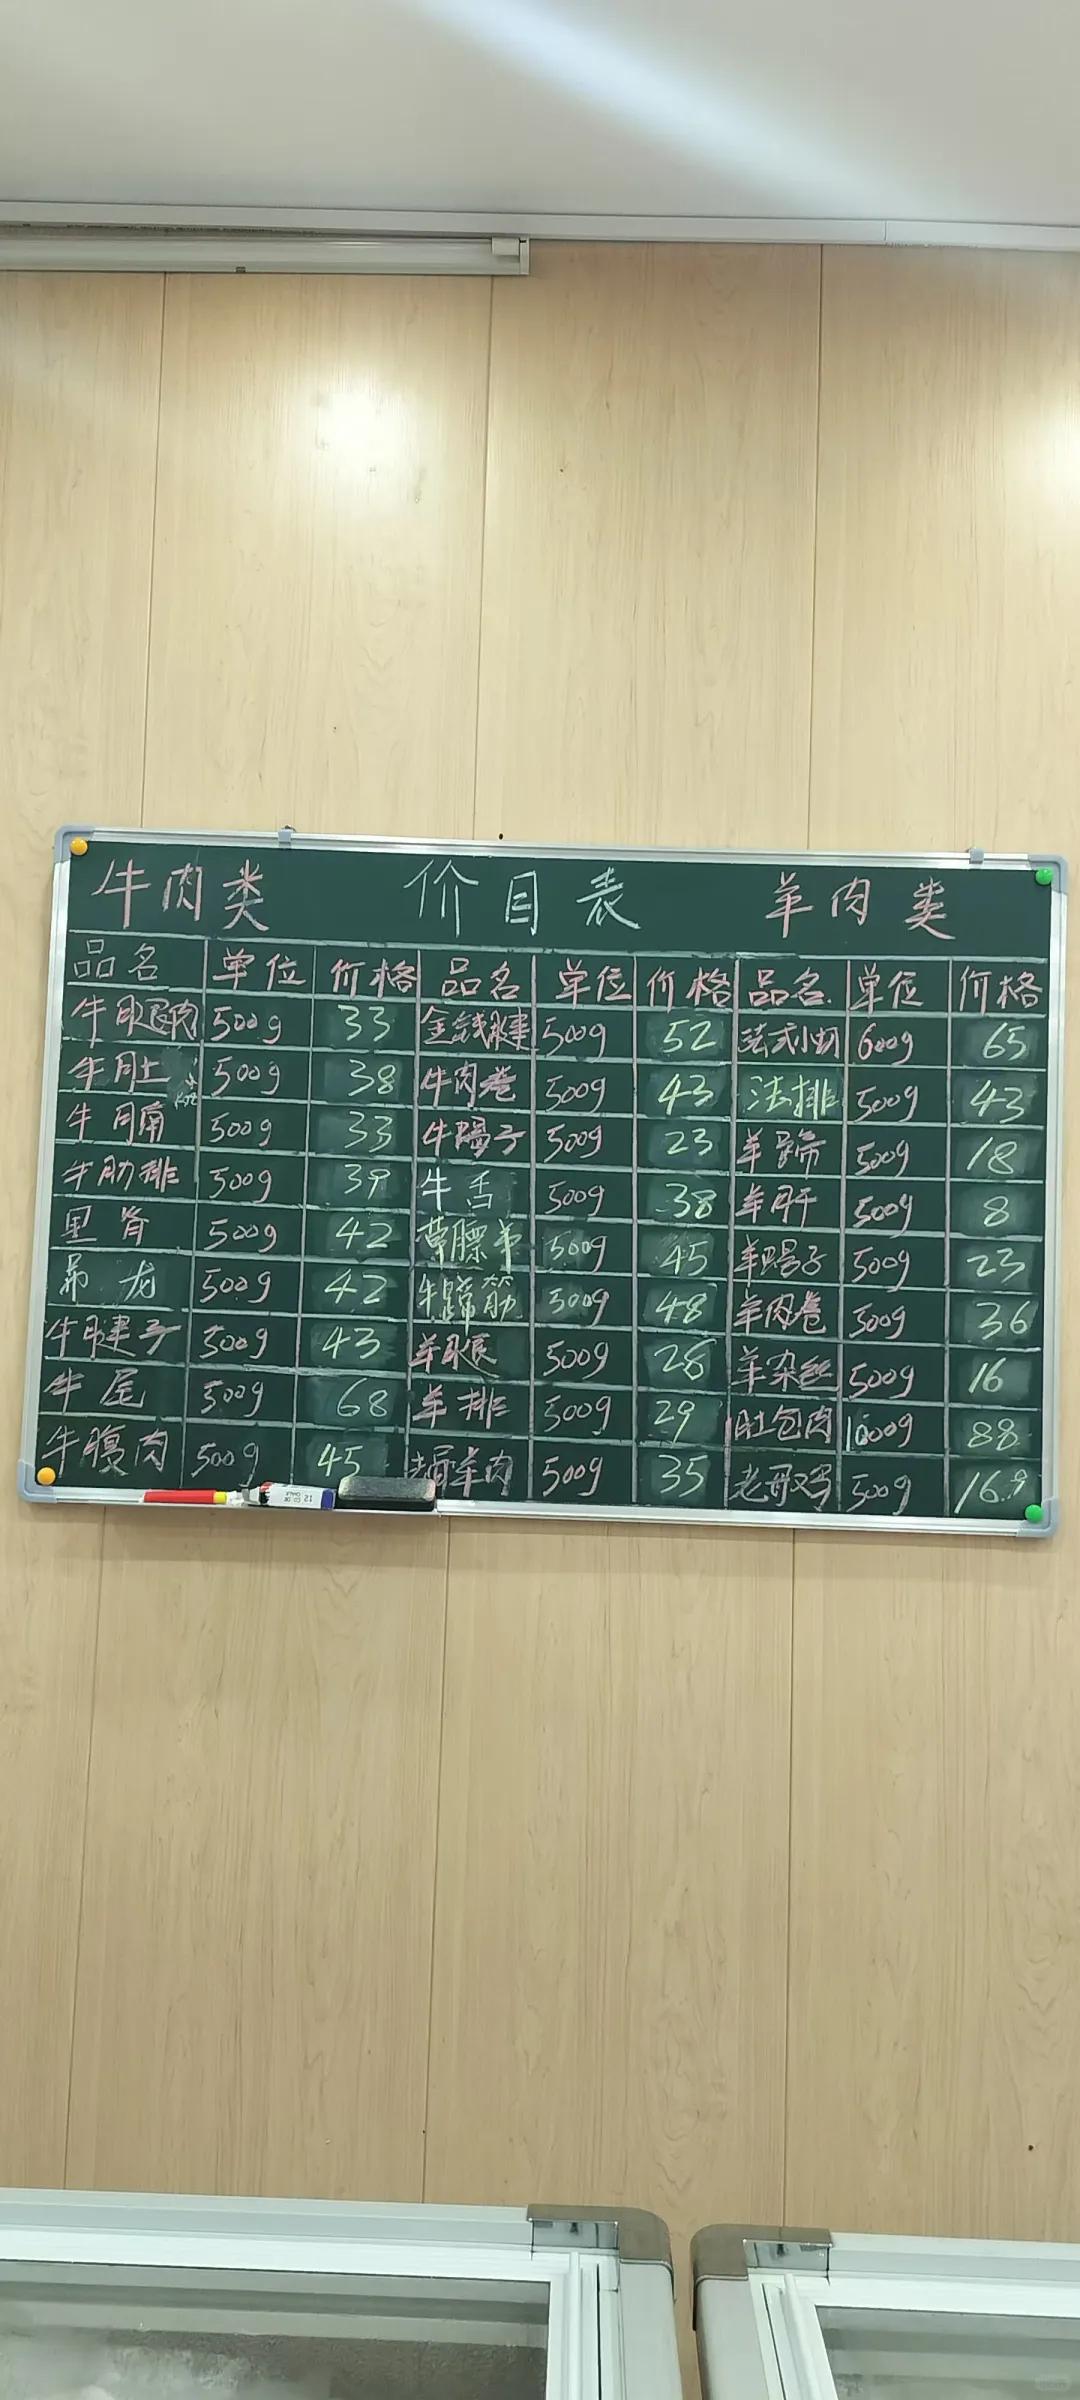 牛肉类 价目表 羊肉类
品名 单位 价格 品名 单位 价格 品名 单位 价格
牛腿肉 500g 33 金钱腱 500g 52 法式小切 600g 65
牛肚 500g 38 牛肉卷 500g 43 法排 500g 43
牛腩 500g 33 牛蝎子 500g 23 羊蹄 500g 18
牛肋排 500g 39 牛舌 500g 38 羊肝 500g 8
里脊 500g 42 500g 45 羊蝎子 500g 23
吊龙 500g 42 牛蹄筋 500g 48 羊肉卷 500g 36
牛腱子 500g 43 羊腿 500g 28 羊杂丝 500g 16
牛尾 500g 68 羊排 500g 29 肚包肉 1000g 88
牛腹肉 500g 45 羊肉 500g 35 500g 16.9